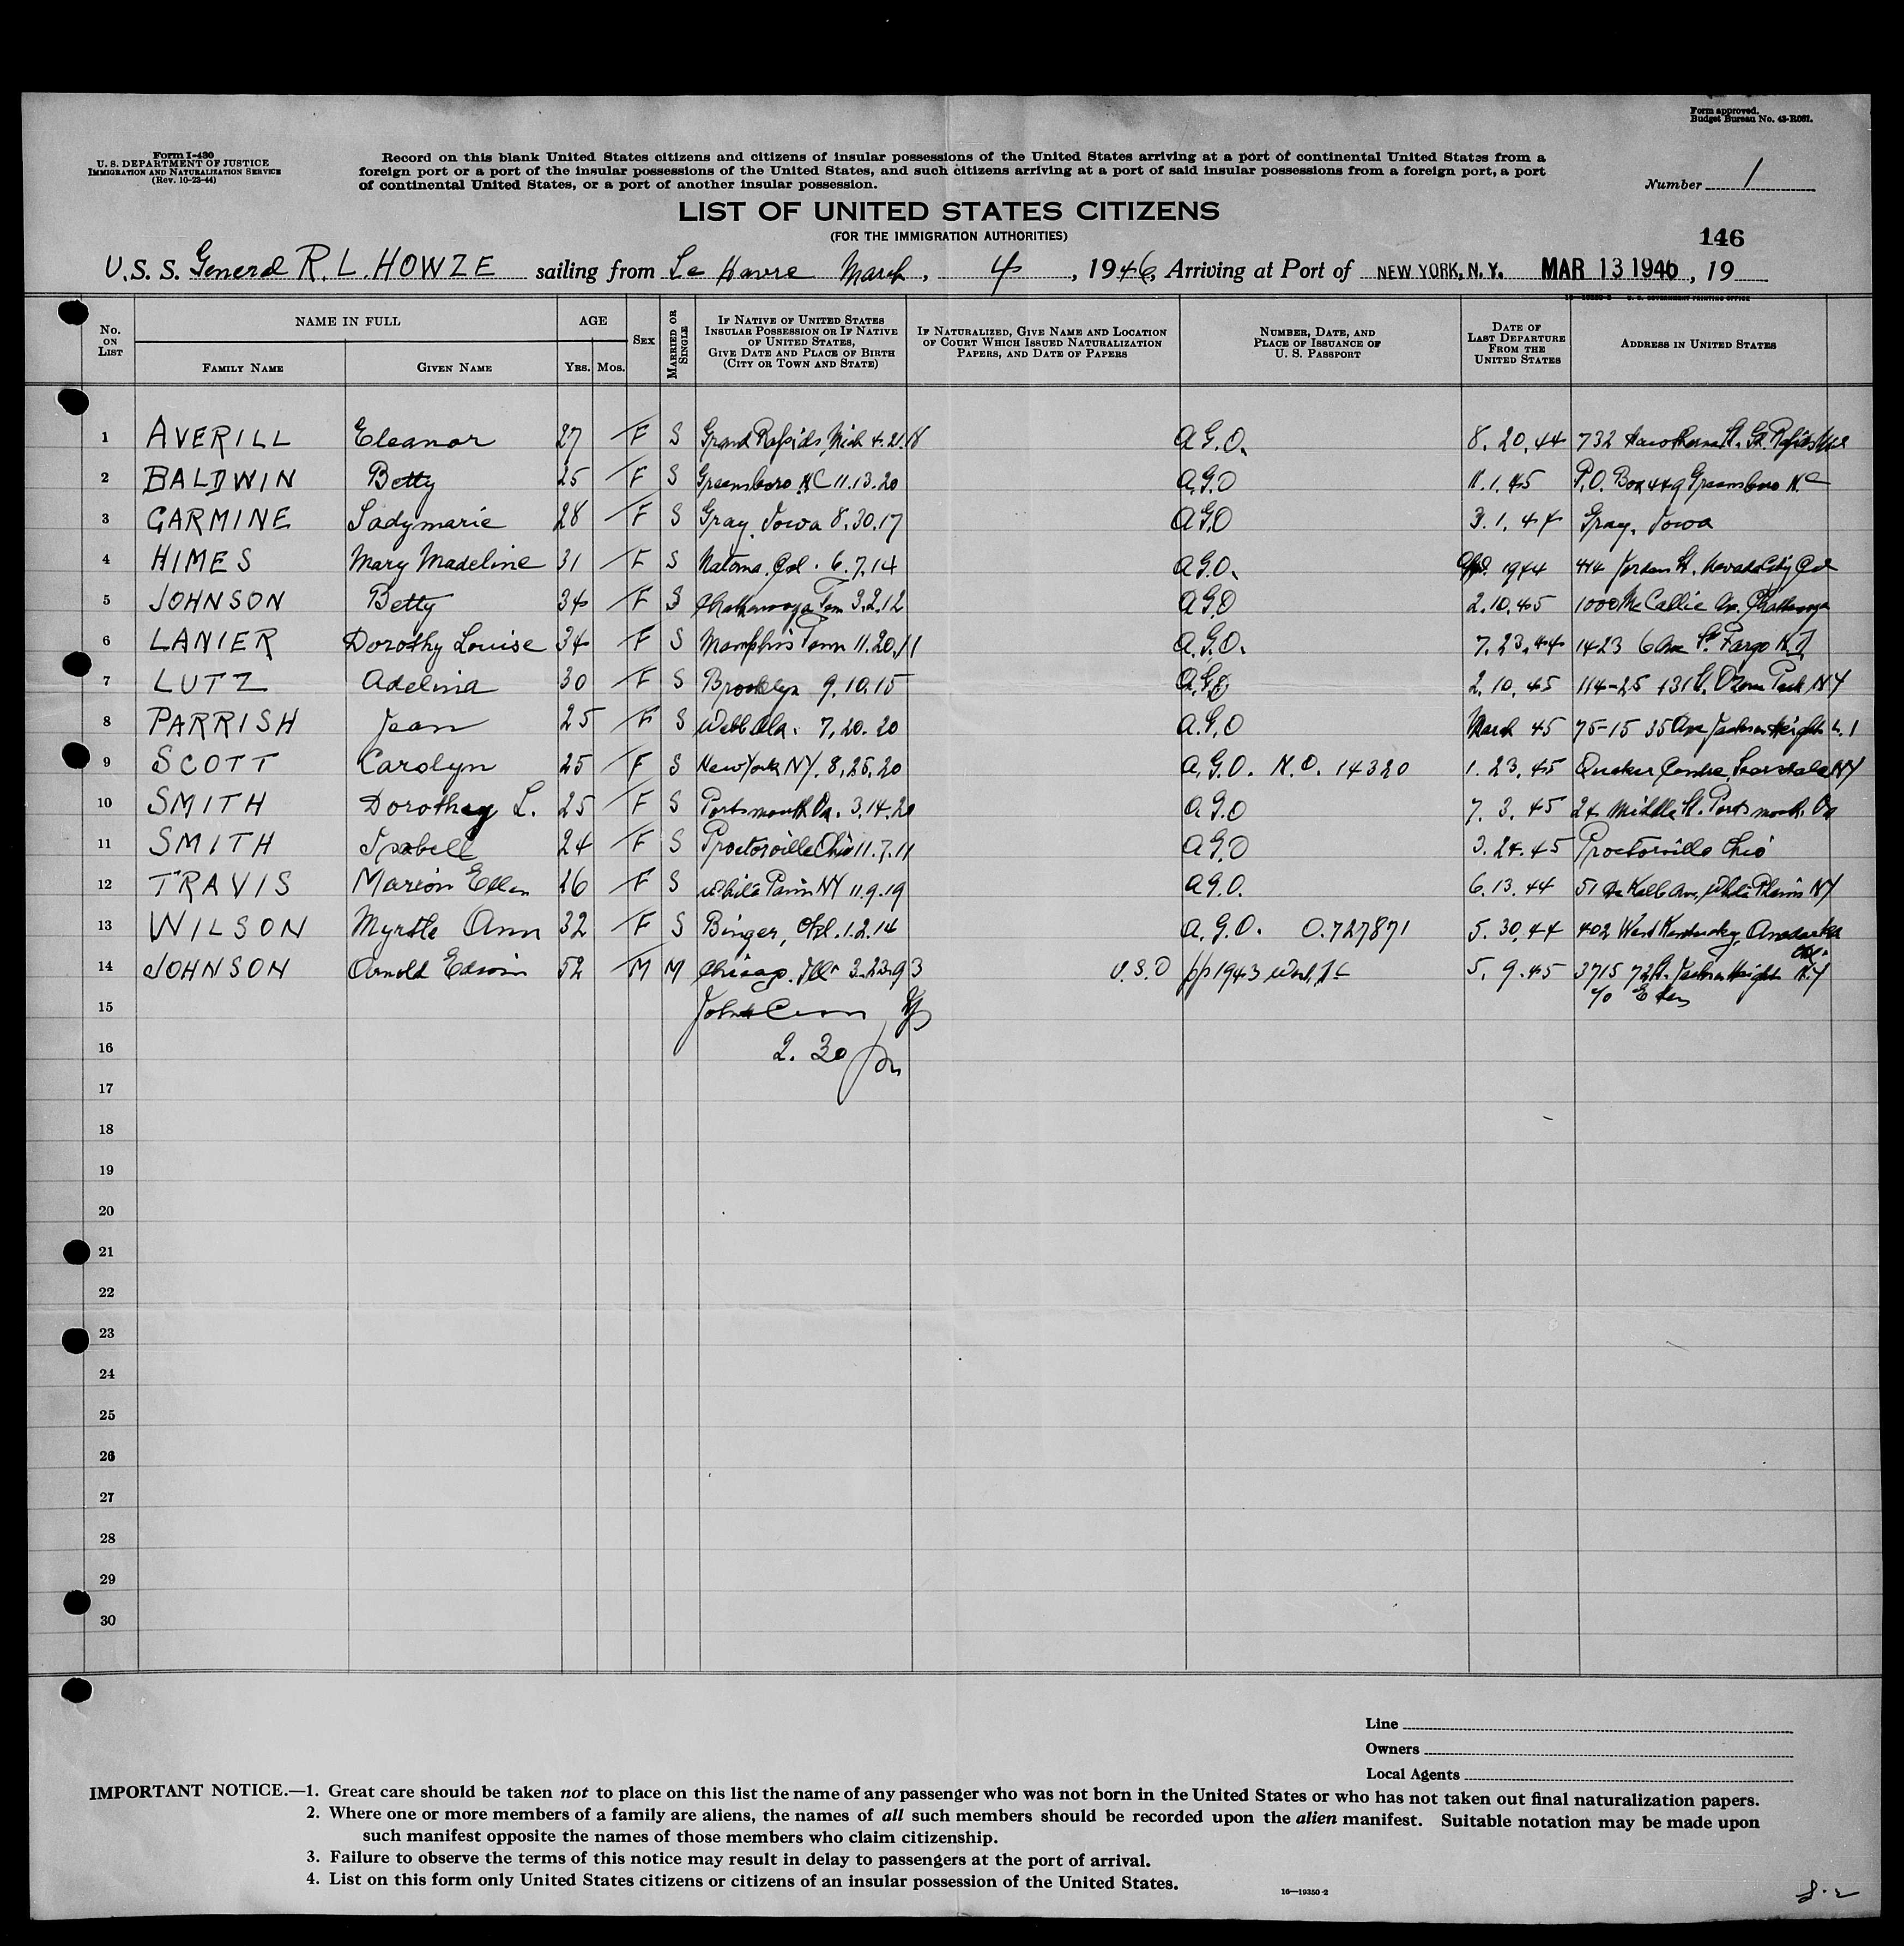 Form approved.
Budget Bureau No. 43-R081.
Form I-430
U. S. DEPARTMENT OF JUSTICE
IMMIGRATION AND NATURALIZATION SERVICE
(Rev. 10-23-44)
Record on this blank United States citizens and citizens of insular possessions of the United States arriving at a port of continental United States from a
foreign port or a port of the insular possessions of the United States, and such citizens arriving at a port of said insular possessions from a foreign port, a port
of continental United States, or a port of another insular possession.
Number 1
LIST OF UNITED STATES CITIZENS
(FOR THE IMMIGRATION AUTHORITIES)
146
U.S. S. General R. L. HOWZE sailing from Le Havre March, 4, 1946, Arriving at Port of NEW YORK, N. Y. MAR 13 1946, 19
No. ON LIST
NAME IN FULL
FAMILY NAME
GIVEN NAME
AGE
YRS. MOS.
SEX
MARRIED OR SINGLE
IF NATIVE OF UNITED STATES
INSULAR POSSESSION OR IF NATIVE
OF UNITED STATES,
GIVE DATE AND PLACE OF BIRTH
(CITY OR TOWN AND STATE)
IF NATURALIZED, GIVE NAME AND LOCATION
OF COURT WHICH ISSUED NATURALIZATION
PAPERS, AND DATE OF PAPERS
NUMBER, DATE, AND
PLACE OF ISSUANCE OF
U. S. PASSPORT
DATE OF
LAST DEPARTURE
FROM THE
UNITED STATES
ADDRESS IN UNITED STATES
1 AVERILL Eleanor 27 F S Grand Rapids, Mich 4.21.18 A.G.O. 8. 20. 44 732 St. Gd. Rapids
2 BALDWIN Betty 25 F S Greensboro NC 11.13.20 A.G.O 11. 1. 45 P.O. Box 449 Greensboro NC
3 GARMINE Ladymarie 28 F S Gray, Iowa 8.30.17 A.G.O 3. 1. 44 Gray, Iowa
4 HIMES Mary Madeline 31 F S Natoma, Cal. 6.7.14 A.G.O. 1944 St. Nevada City Cal
5 JOHNSON Betty 34 F S Chattanooga Tenn 3.2.12 A.G.O 2.10.45 1000 McCallie Av. Chattanooga
6 LANIER Dorothy Louise 34 F S Memphis Tenn 11.20.11 A.G.O. 7. 23. 44 1423 6 Ave St. Fargo N.D.
7 LUTZ Adelina 30 F S Brooklyn 9.10.15 A.G.O 2. 10. 45 114-25 131 St. Ozone Park, NY
8 PARRISH Jean 25 F S Webb Ala. 7.20.20 A.G.O March 45 75-15 35 Ave Jackson Heights L.I
9 SCOTT Carolyn 25 F S New York NY. 8.25.20 A.G.O. N.O. 14320 1. 23. 45 Quaker Centre, Scarsdale NY
10 SMITH Dorothey L. 25 F S Portsmouth Va. 3.14.20 A.G.O 7. 3. 45 24 Middle St. Portsmouth, Va
11 SMITH Isabell 24 F S Proctorville Ohio 11.7.11 A.G.O 3. 24. 45 Proctorville Ohio
12 TRAVIS Marion Ellen 26 F S White Plains NY 11.9.19 A.G.O. 6. 13. 44 51 De Kalb Ave, White Plains NY
13 WILSON Myrtle Ann 32 F S Binger, Okl. 1.2.14 A.G.O. O.727871 5. 30. 44 402 West Kentucky, Anadarko Okl.
14 JOHNSON Arnold Edwin 52 M M Chicago, Ill. 3.23.93 U.S.D pp 1943 5. 9. 45 3715 72 St. Jackson Heights N.Y
15
16 2. 30 pm
17
18
19
20
21
22
23
24
25
26
27
28
29
30
Line
Owners
Local Agents
IMPORTANT NOTICE.—1. Great care should be taken not to place on this list the name of any passenger who was not born in the United States or who has not taken out final naturalization papers.
2. Where one or more members of a family are aliens, the names of all such members should be recorded upon the alien manifest. Suitable notation may be made upon
such manifest opposite the names of those members who claim citizenship.
3. Failure to observe the terms of this notice may result in delay to passengers at the port of arrival.
4. List on this form only United States citizens or citizens of an insular possession of the United States.
16—19350-2